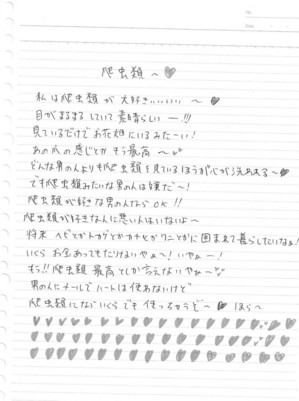 No.
Date
爬虫類〜♥
私は爬虫類が大好きぃぃぃぃ〜♥
目がまるまるしていて素晴らしいー!!!
見ているだけでお花畑にいるみたーい!
あの爪の感じとかもう最高〜
どんな男の人よりも爬虫類を見ているほうが心が洗われる〜
でも爬虫類みたいな男の人は嫌だ〜!
爬虫類が好きな男の人ならOK!!
爬虫類が好きな人に悪い人はいないよ〜
将来ヘビとかトカゲとかカナヘビやワニとかに囲まれて暮らしていたいなぁ!
いくらお金あってもたりないやぁ〜!いやぁー!
もう!!爬虫類最高としか言えないやぁ〜
男の人にメールでハートは使わないけど
爬虫類にならいくらでも使っちゃうぞ〜♥ほら〜
♥♥♥♥♥♥♥♥♥♥♥♥♥♥♥♥
♥♥♥♥♥♥♥♥♥♥♥♥♥♥♥♥
♥♥♥♥♥♥♥♥♥♥♥♥♥♥♥♥